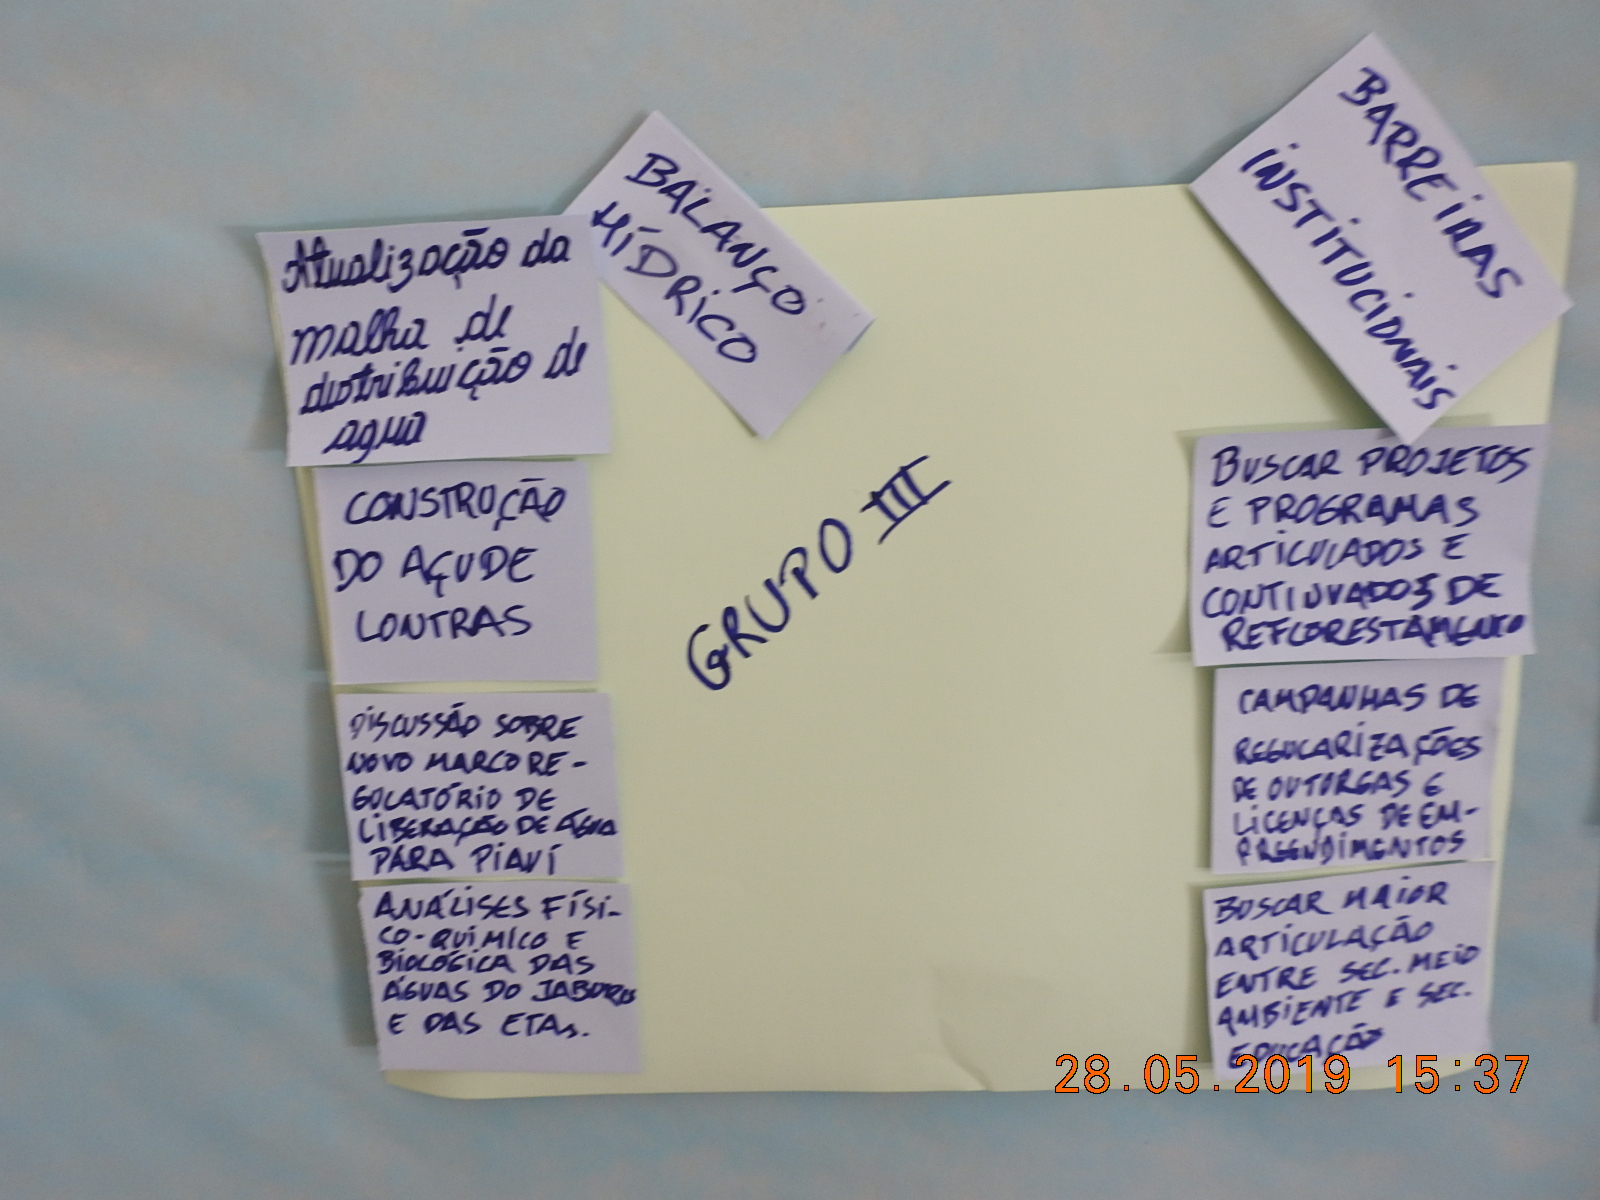 BALANÇO
HÍDRICO
Atualização da
malha de
distribuição de
agua
CONSTRUÇÃO
DO AÇUDE
LONTRAS
DISCUSSÃO SOBRE
NOVO MARCO RE-
GULATÓRIO DE
LIBERAÇÃO DE ÁGUA
PARA PIAUÍ
ANÁLISES FÍSI-
CO-QUIMICO E
BIOLÓGICA DAS
ÁGUAS DO JABURU
E DAS ETAs.
GRUPO III
BARREIRAS
INSTITUCIONAIS
BUSCAR PROJETOS
E PROGRAMAS
ARTICULADOS E
CONTINUADOS DE
REFLORESTAMENTO
CAMPANHAS DE
REGULARIZAÇÕES
DE OUTORGAS E
LICENÇAS DE EM-
PREENDIMENTOS
BUSCAR MAIOR
ARTICULAÇÃO
ENTRE SEC. MEIO
AMBIENTE E SEC.
EDUCAÇÃO
28.05.2019 15:37